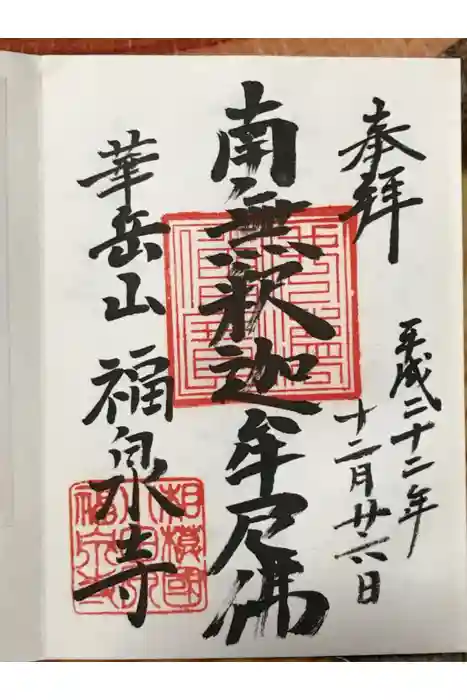 奉拝
平成二十二年
十二月廿六日
南無釈迦牟尼佛
華岳山 福泉寺
相模國